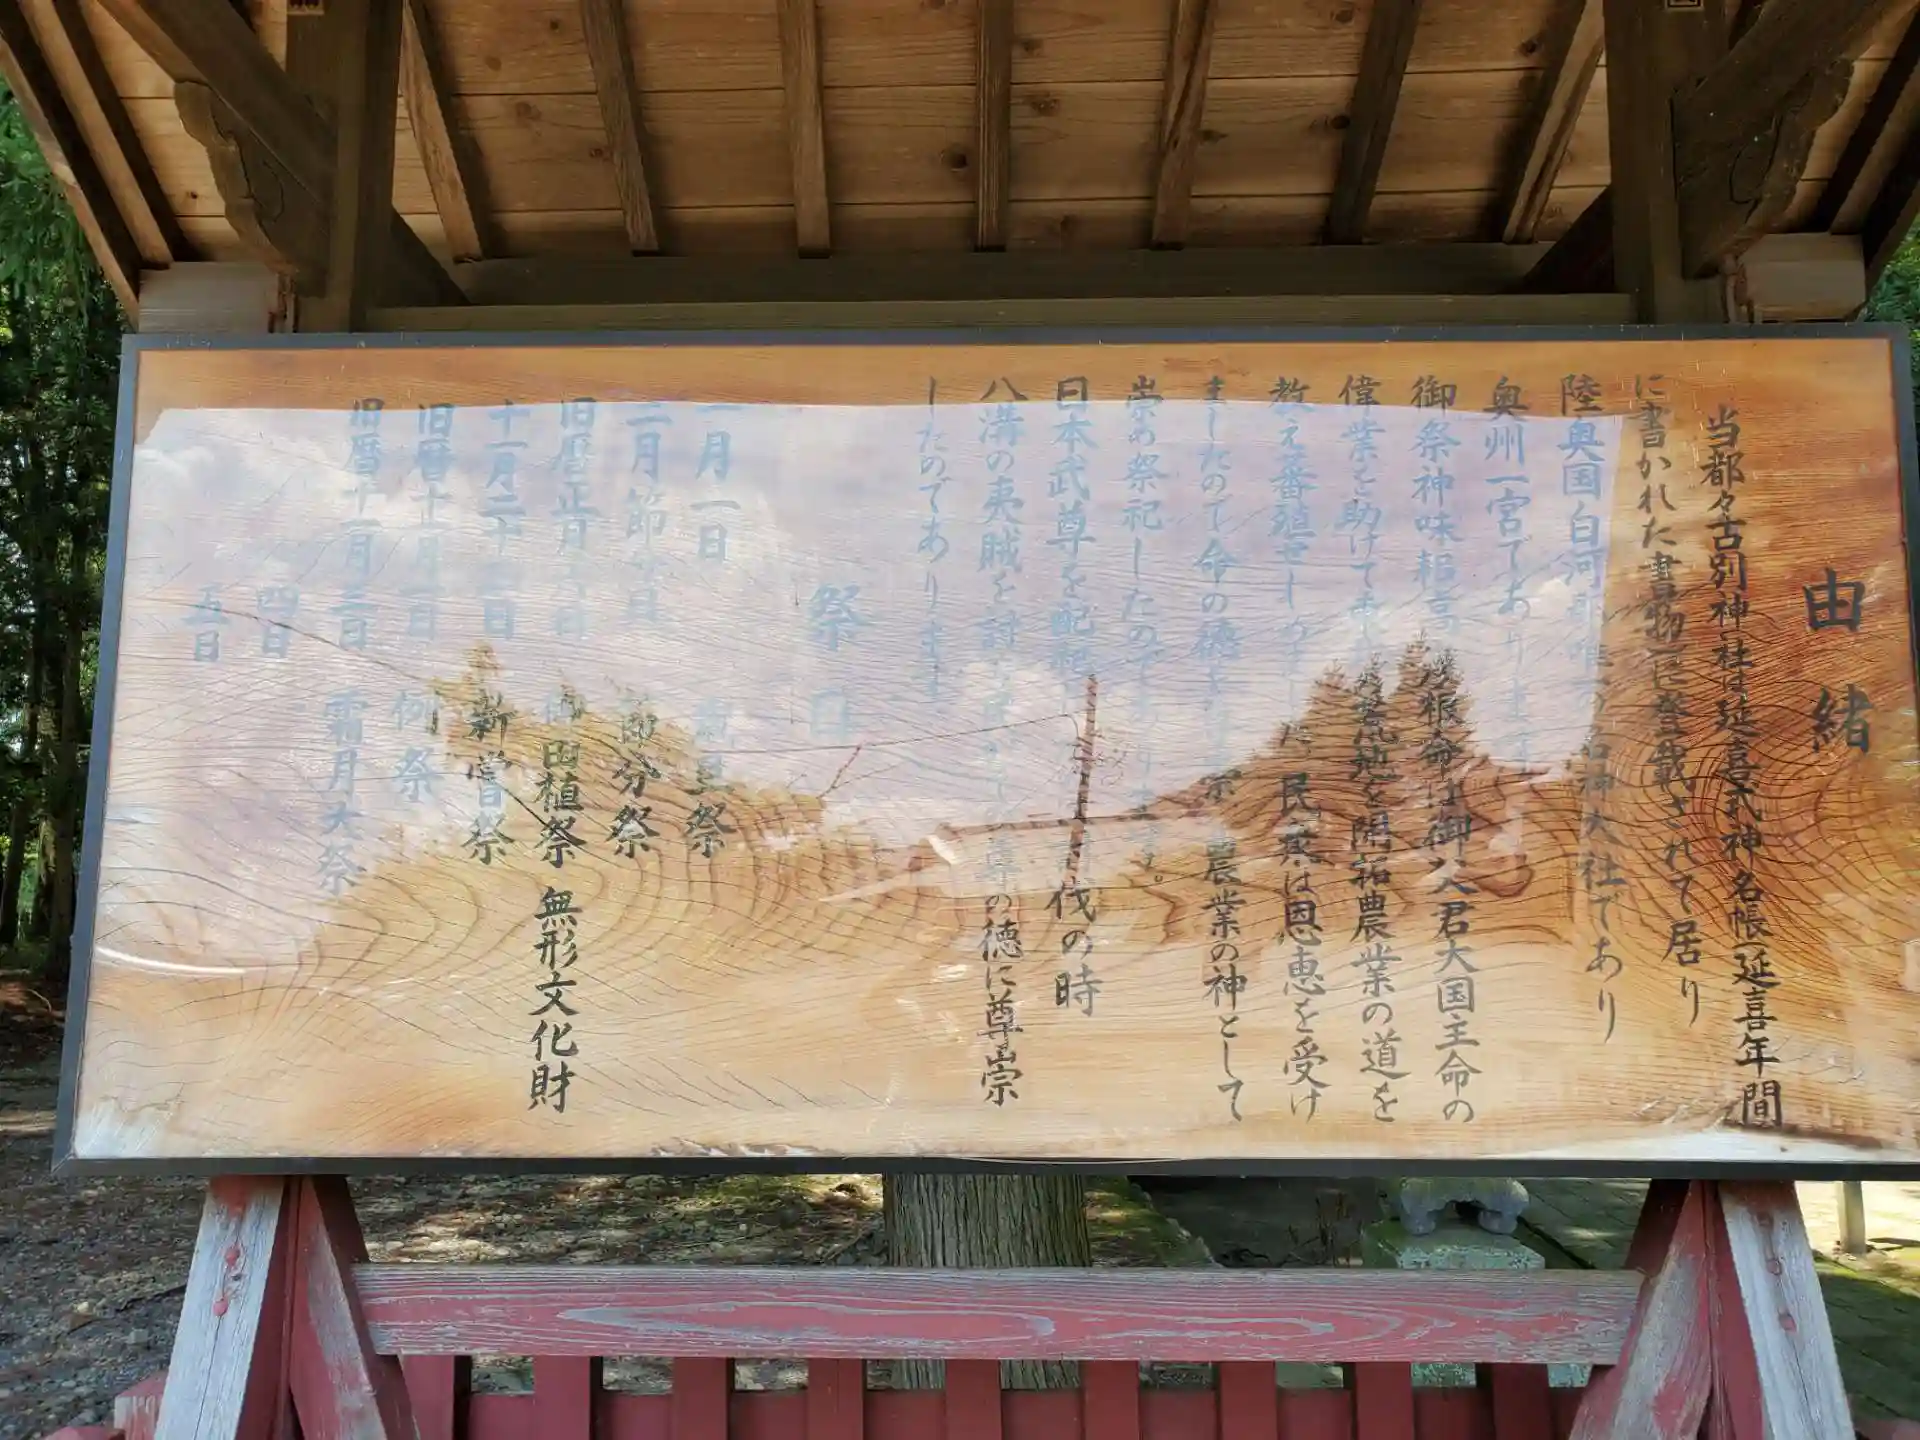 由緒
当都々古別神社は延喜式神名帳(延喜年間
に書かれた書物)に登載されて居り
陸奥国白河郡唯一の名神大社であり
奥州一宮であります
御祭神味耜高彦根命は御父君大国主命の
偉業を助けて東奥荒地を開拓農業の道を
教え蕃殖せしめました 民衆は恩恵を受け
ましたので命の徳を 農業の神として
崇め祭祀したのであります。
日本武尊を配祀 伐の時
八溝の夷賊を討 尊の徳に尊崇
したのであります
祭日
一月一日 歳旦祭
二月節分日 節分祭
旧暦正月六日 御田植祭 無形文化財
十一月二十三日 新嘗祭
旧暦十一月一日 例祭
旧暦十一月三日 霜月大祭
四日
五日